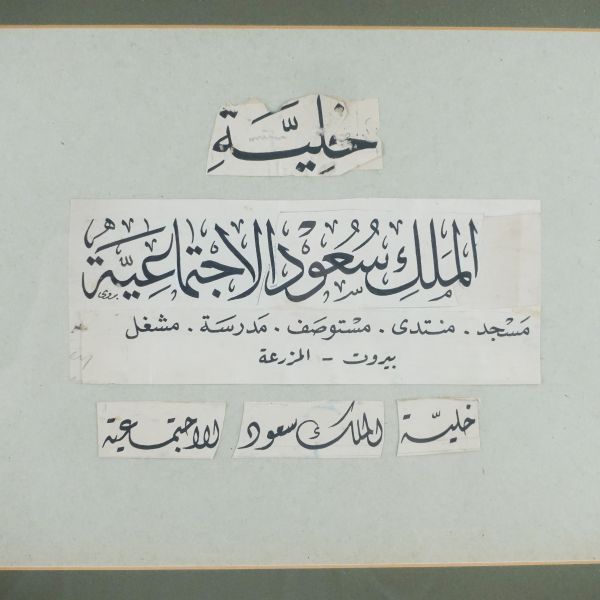 خَلِيَّةِ
المَلَكِ سُعُوْد الاجتِمَاعِيَّة
مَسْجد . منتدى . مستوصَف . مَدرسَة . مشغل
بيروت - المزرعة
خليّة الملك سعود الاجتماعيّة